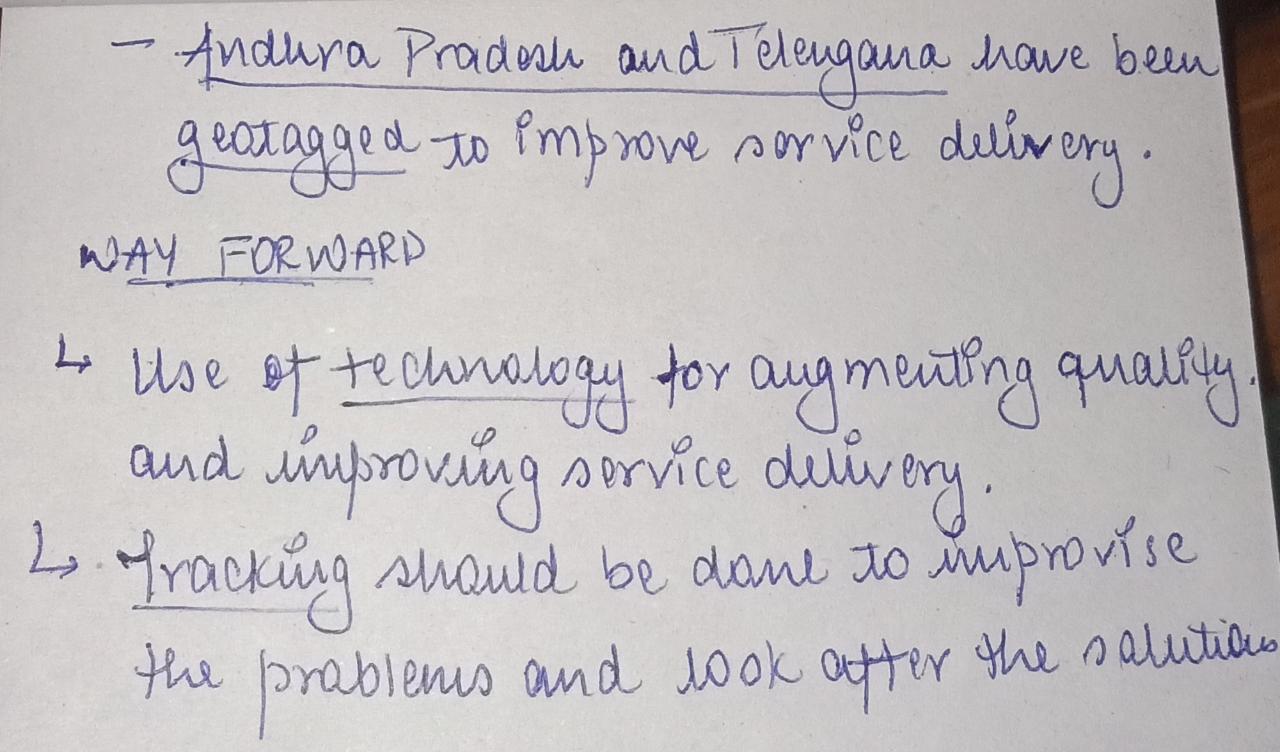 - Andhra Pradesh and Telengana have been
geotagged to improve service delivery.
WAY FORWARD
↳ Use of technology for augmenting quality.
and improving service delivery.
↳ Tracking should be done to improvise
the problems and look after the solutions